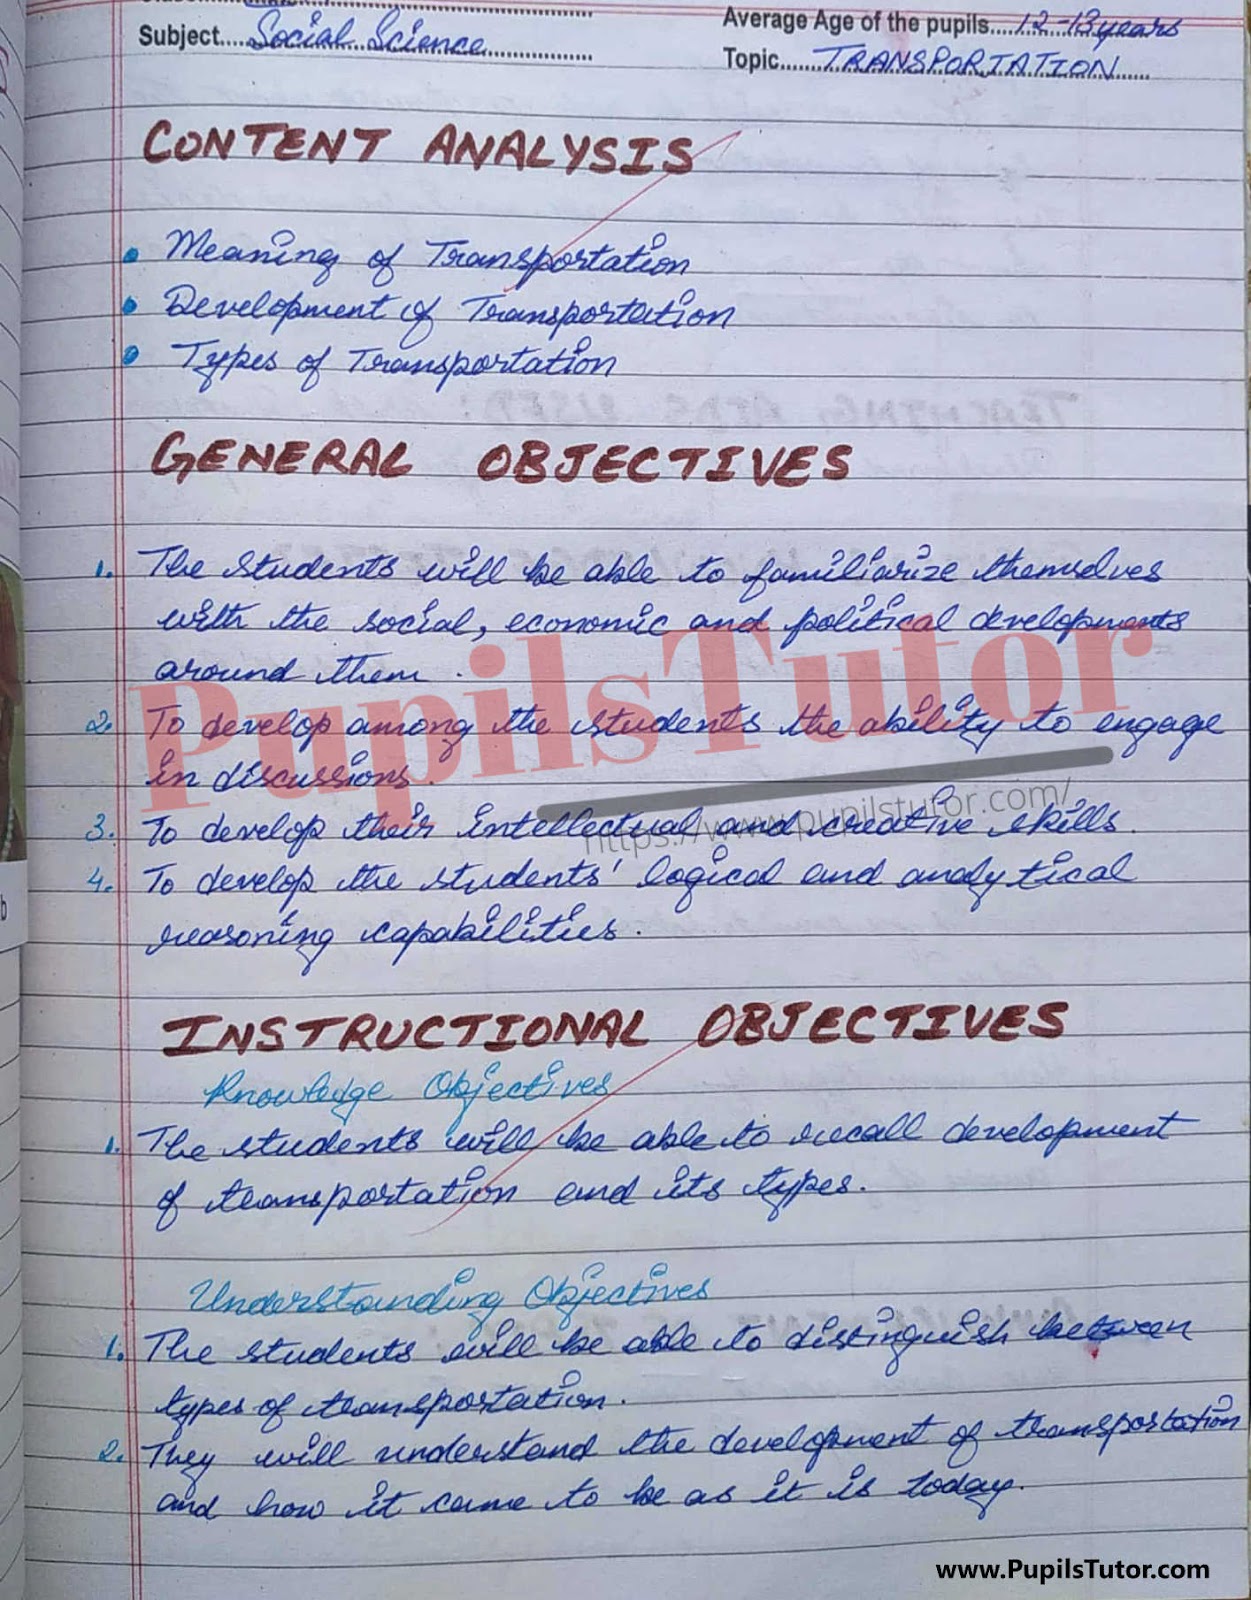 Subject....Social Science
Average Age of the pupils....12-13 years
Topic.......TRANSPORTATION
CONTENT ANALYSIS
• Meaning of Transportation
• Development of Transportation
• Types of Transportation
GENERAL OBJECTIVES
1. The students will be able to familiarize themselves
with the social, economic and political developments
around them.
2. To develop among the students the ability to engage
in discussions.
3. To develop their intellectual and creative skills.
4. To develop the students' logical and analytical
reasoning capabilities.
PupilsTutor
https://www.pupilstutor.com/
INSTRUCTIONAL OBJECTIVES
Knowledge Objectives
1. The students will be able to recall development
of transportation and its types.
Understanding Objectives
1. The students will be able to distinguish between
types of transportation.
2. They will understand the development of transportation
and how it came to be as it is today.
www.PupilsTutor.com